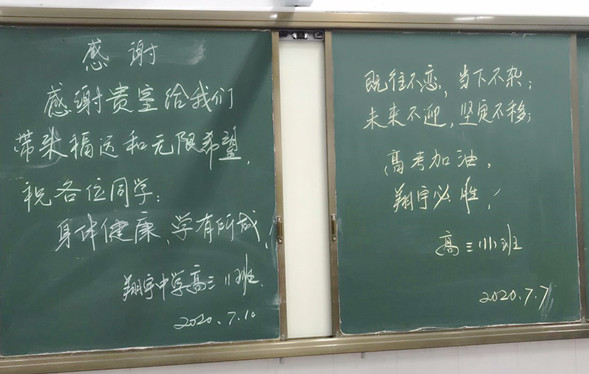 感谢
感谢贵室给我们
带来福运和无限希望,
祝各位同学:
身体健康,学有所成,
翔宇中学高三11班.
2020.7.10
既往不恋,当下不杂;
未来不迎,坚定不移;
高考加油,
翔宇必胜,
高三 班
2020.7.7